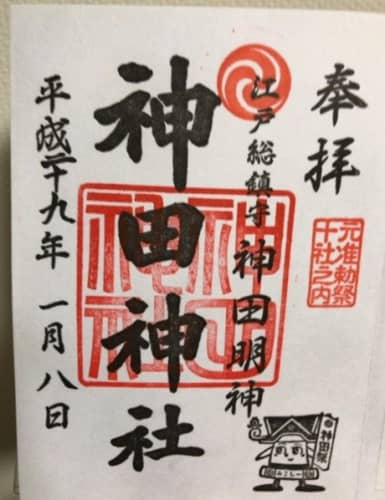 奉拝
元准勅祭
十社之内
江戸総鎮守 神田明神
神田神社
神田
神社
平成二十九年 一月八日
神田祭
みこしー